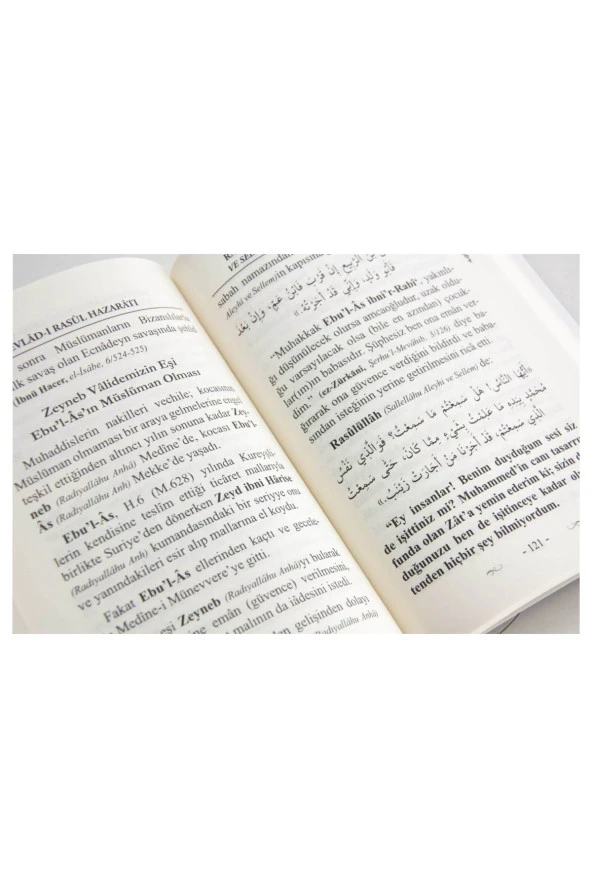 EVLÂD-I RASÛL HAZARÂTI
sonra Müslümanların Bizanslılarla
ilk savaş olan Ecnâdeyn savaşında şehîd
(İbnü Hacer, el-İsâbe, 6/524-525)
Zeyneb Vâlidemizin Eşi
Ebu'l-Âs'ın Müslüman Olması
Muhaddislerin nakilleri vechile; kocasının
Müslüman olmaması bir araya gelmelerine engel
teşkil ettiğinden altıncı yılın sonuna kadar Zey-
neb (Radıyallâhu Anhâ) Medîne'de, kocası Ebu'l-
Âs (Radıyallâhu Anh) Mekke'de yaşadı.
Ebu'l-Âs, H.6 (M.628) yılında Kureyşli-
lerin kendisine teslîm ettiği ticâret mallarıyla
birlikte Suriye'den dönerken Zeyd ibni Hârise
(Radıyallâhu Anh) kumandasındaki bir seriyye onu
ve yanındakileri esir alıp mallarına el koydu.
Fakat Ebu'l-Âs ellerinden kaçtı ve gecele-
Medîne-i Münevvere'ye gitti.
eşi Zeyneb (Radıyallâhu Anhâ)yı bularak
ine emân (güvence) verilmesini,
malının da iâdesini istedi.
gelişinden dolayı
(Radıyallâhu Anhâ)
VE SEL
sabah namazından
Aleyhi ve Sellem)in kapısın
الرَّبِيعِ إِنْ قَرُبَ فَابْنُ عَمٍّ، وَإِنْ بَعُدَ
فَأَبُو وَلَدٍ، وَإِنِّي قَدْ أَجَرْتُهُ.»
"Muhakkak Ebu'l-Âs ibnu'r-Rabî', yakınlı-
ğı düşünülecek olursa amcaoğludur, uzak oldu-
ğu varsayılacak olsa (bile en azından) çocuk-
lar(ım)ın babasıdır. Şüphesiz ben ona emân ver-
dim." (ez-Zürkânî, Şerhu'l-Mevâhib, 8/126) diye ba-
ğırarak ona güvence verdiğini bildirdi ve baba-
sından isteğinin yerine getirilmesini rica etti.
Rasûlüllâh (Sallellâhu Aleyhi ve Sellem) de:
«أَيُّهَا النَّاسُ! هَلْ سَمِعْتُمْ مَا سَمِعْتُ؟ فَوَالَّذِي نَفْسُ
مُحَمَّدٍ بِيَدِهِ مَا عَلِمْتُ بِشَيْءٍ مِمَّا كَانَ حَتَّى سَمِعْتُ
مَا سَمِعْتُمْ، قَدْ أَجَرْنَا مَنْ أَجَارَتْ زَيْنَبُ.»
"Ey insanlar! Benim duyduğum sesi siz
de işittiniz mi? Muhammed'in canı tasarru-
funda olan Zât'a yemin ederim ki; sizin d
duğunuzu ben de işitinceye kadar ol
tenden hiçbir şey bilmiyordum.
- 121 -